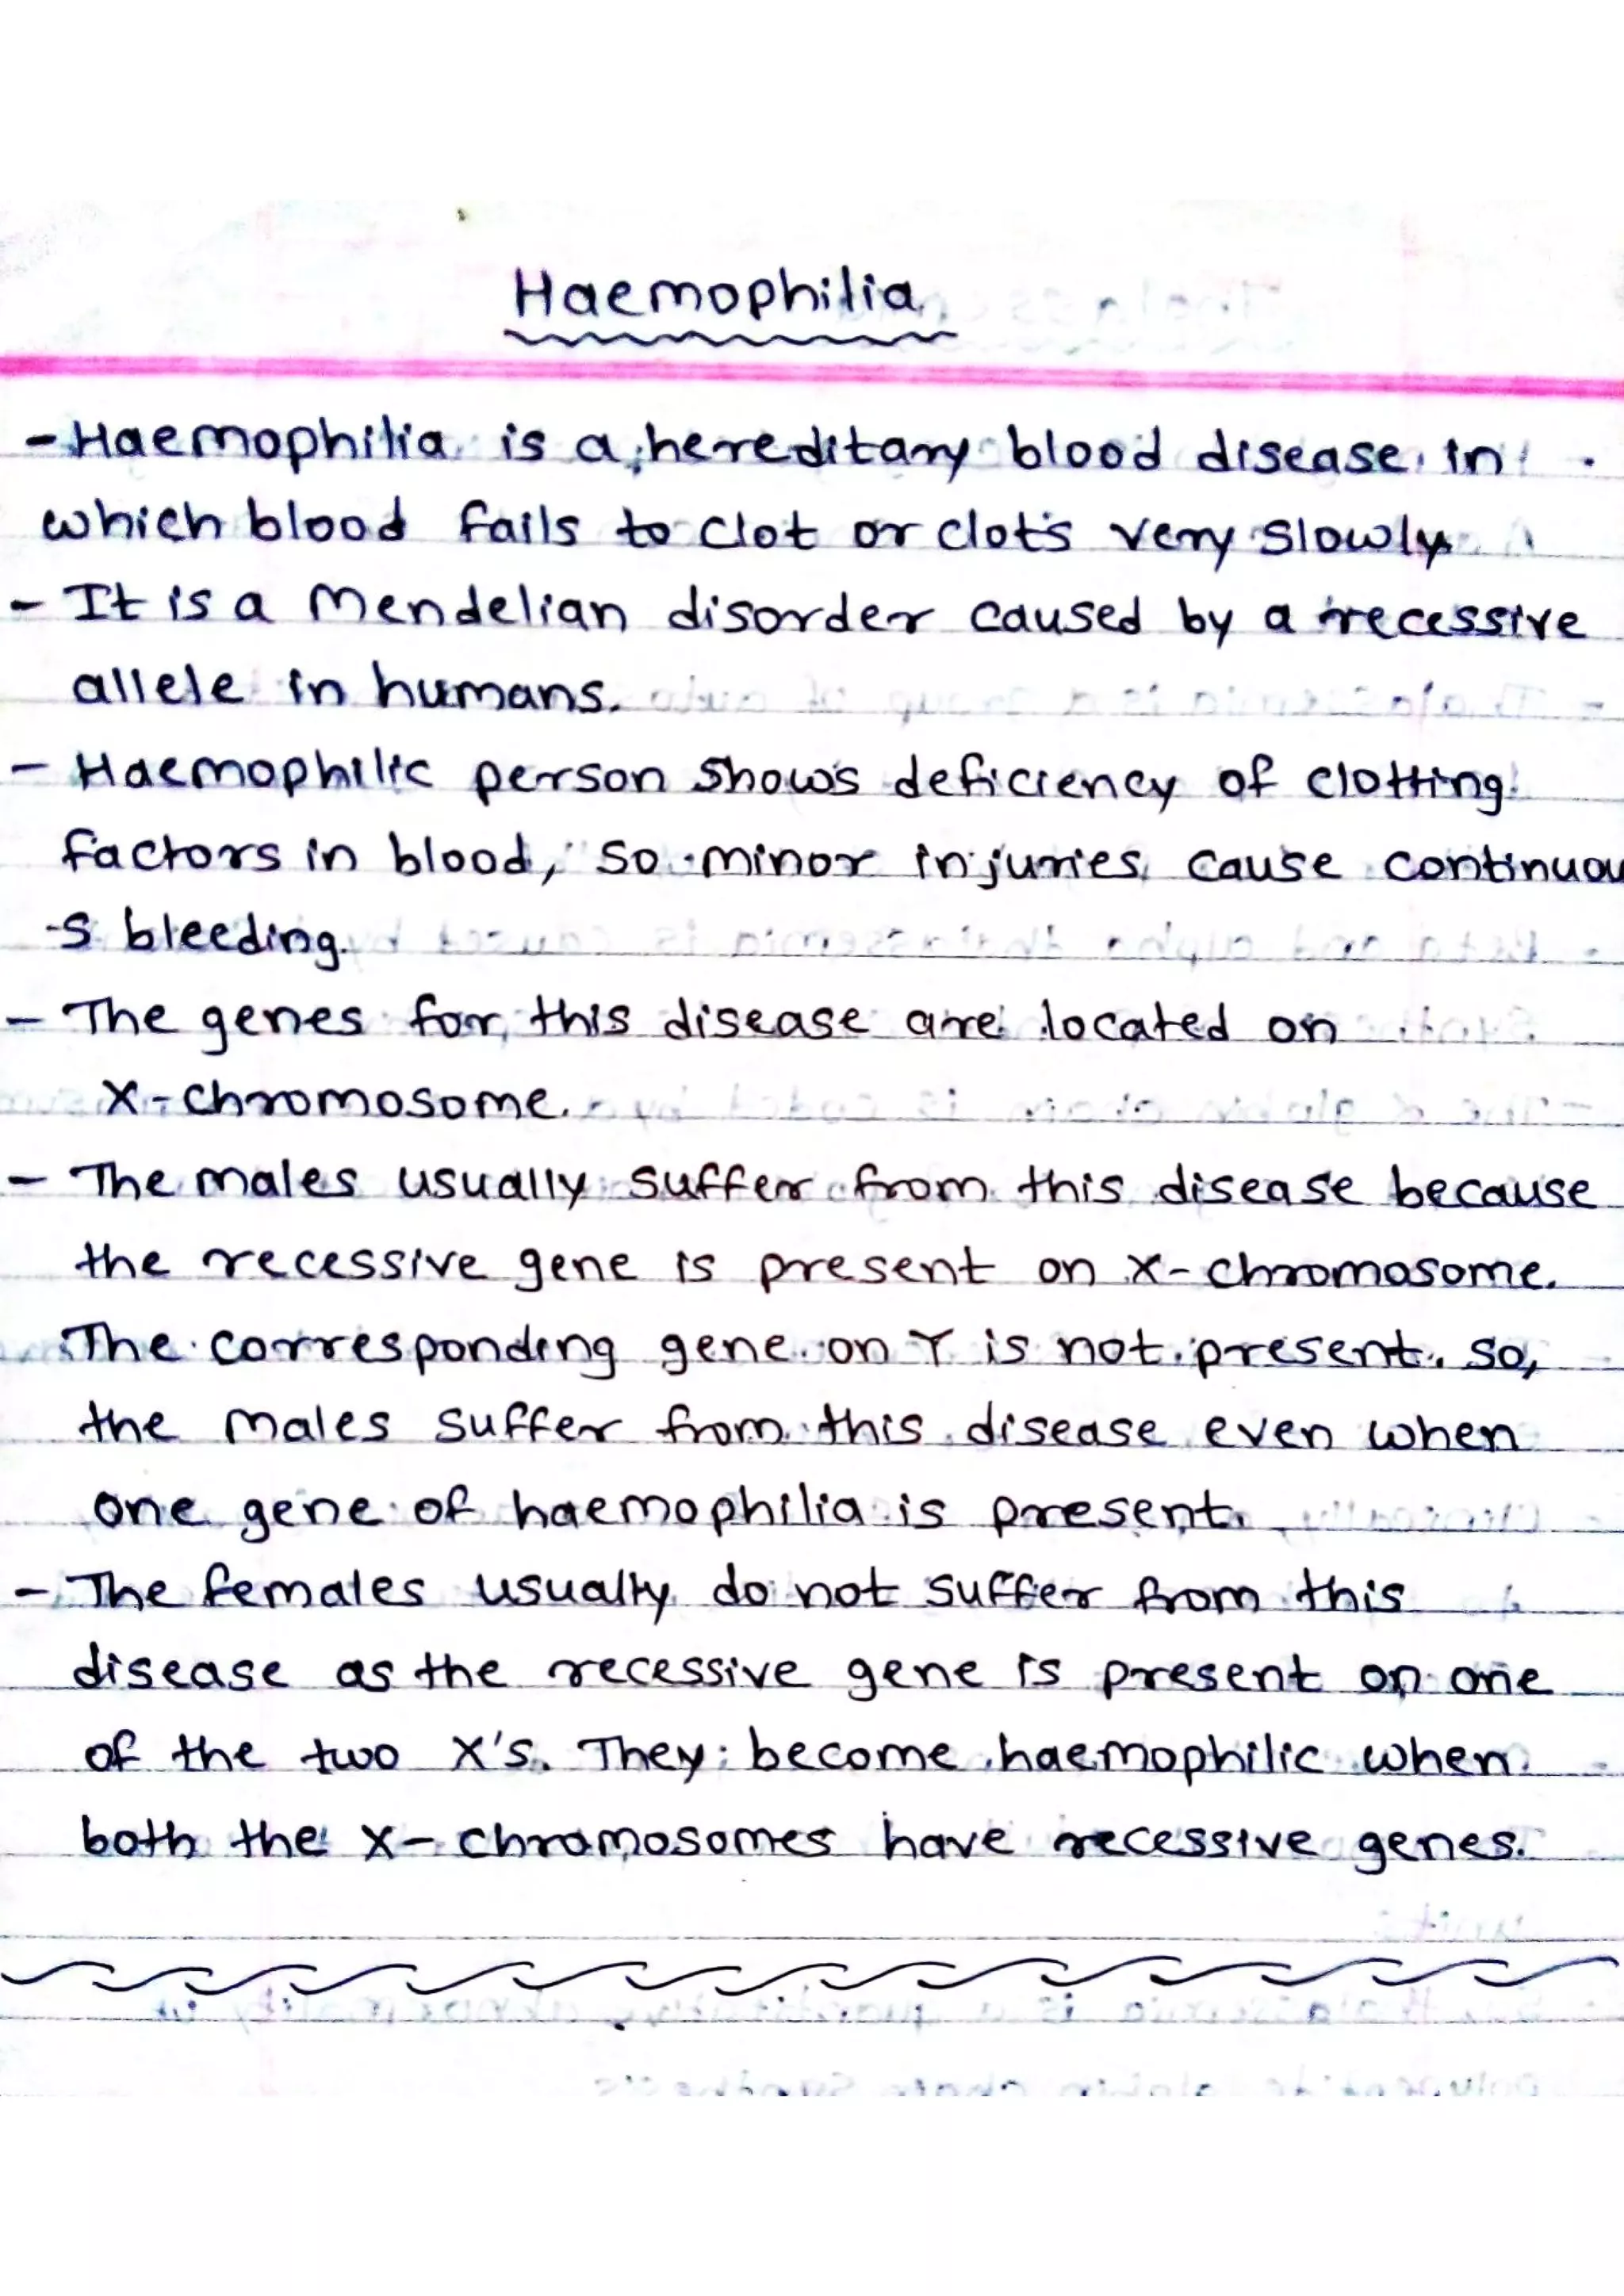 Haemophilia
- Haemophilia is a hereditary blood disease in
which blood fails to clot or clots very slowly
- It is a Mendelian disorder caused by a recessive
allele in humans.
- Haemophilic person shows deficiency of clotting
factors in blood, so minor injuries cause continuou
-s bleeding.
- The genes for this disease are located on
X-chromosome.
- The males usually suffer from this disease because
the recessive gene is present on X-chromosome.
The corresponding gene on Y is not present. So,
the males suffer from this disease even when
one gene of haemophilia is present.
- The females usually do not suffer from this
disease as the recessive gene is present on one
of the two X's. They become haemophilic when
both the X-chromosomes have recessive genes.